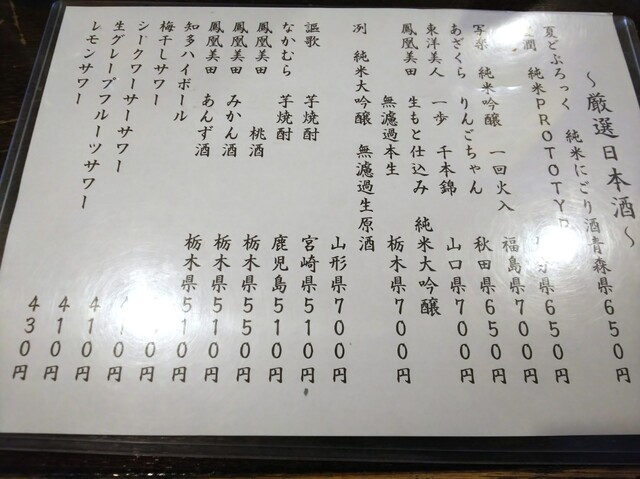 ～厳選日本酒～
夏どぶろっく 純米にごり酒青森県650円
純米PROTOTYP 650円
写楽 純米吟醸 一回火入 福島県700円
あざくら りんごちゃん 秋田県650円
東洋美人 一歩 千本錦 純米大吟醸 山口県700円
鳳凰美田 生もと仕込み 無濾過本生 栃木県700円
冽 純米大吟醸 無濾過生原酒 山形県700円
謳歌 芋焼酎 宮崎県510円
なかむら 芋焼酎 鹿児島510円
鳳凰美田 桃酒 栃木県550円
鳳凰美田 みかん酒 栃木県510円
鳳凰美田 あんず酒 栃木県510円
知多ハイボール 円
梅干しサワー 円
シークワーサーサワー 410円
生グレープフルーツサワー 410円
レモンサワー 430円